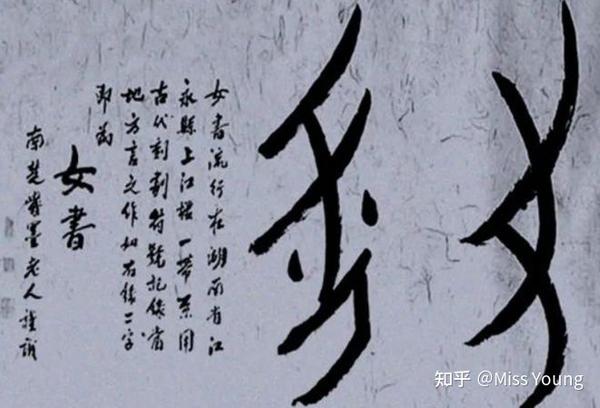 女書流行在湖南省江
永縣上江墟一帶系用
古代刻劃符號記錄當
地方言之作如右錄二字
即為
女書
南楚墨老人謹識
知乎 @Miss Young